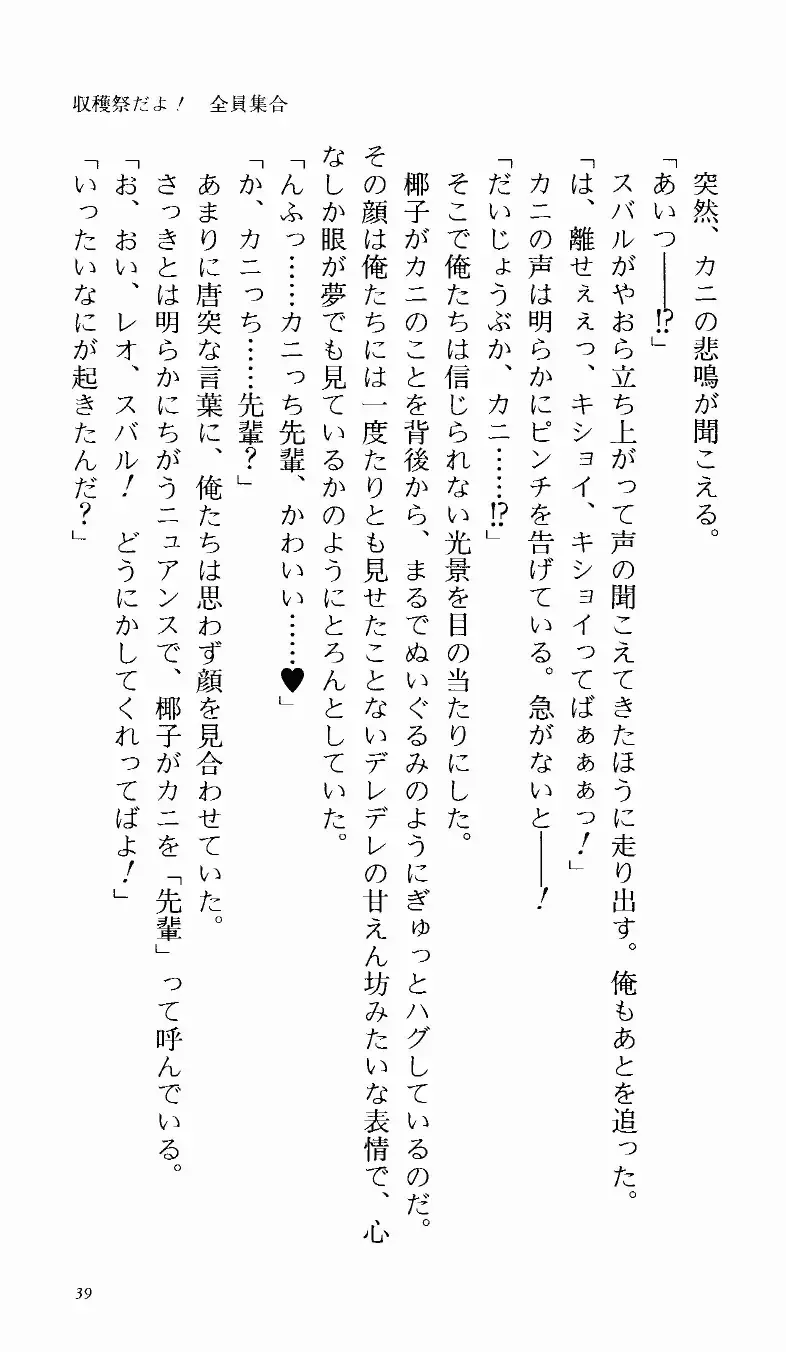 収穫祭だよ！　全員集合
　突然、カニの悲鳴が聞こえる。
「あいつ――!?」
　スバルがやおら立ち上がって声の聞こえてきたほうに走り出す。俺もあとを追った。
「は、離せぇぇっ、キショイ、キショイってばぁぁぁっ！」
　カニの声は明らかにピンチを告げている。急がないと――！
「だいじょうぶか、カニ……!?」
　そこで俺たちは信じられない光景を目の当たりにした。
　椰子がカニのことを背後から、まるでぬいぐるみのようにぎゅっとハグしているのだ。
その顔は俺たちには一度たりとも見せたことないデレデレの甘えん坊みたいな表情で、心
なしか眼が夢でも見ているかのようにとろんとしていた。
「んふっ……カニっち先輩、かわいい……♥」
「か、カニっち……先輩？」
　あまりに唐突な言葉に、俺たちは思わず顔を見合わせていた。
　さっきとは明らかにちがうニュアンスで、椰子がカニを「先輩」って呼んでいる。
「お、おい、レオ、スバル！　どうにかしてくれってばよ！」
「いったいなにが起きたんだ？」
39